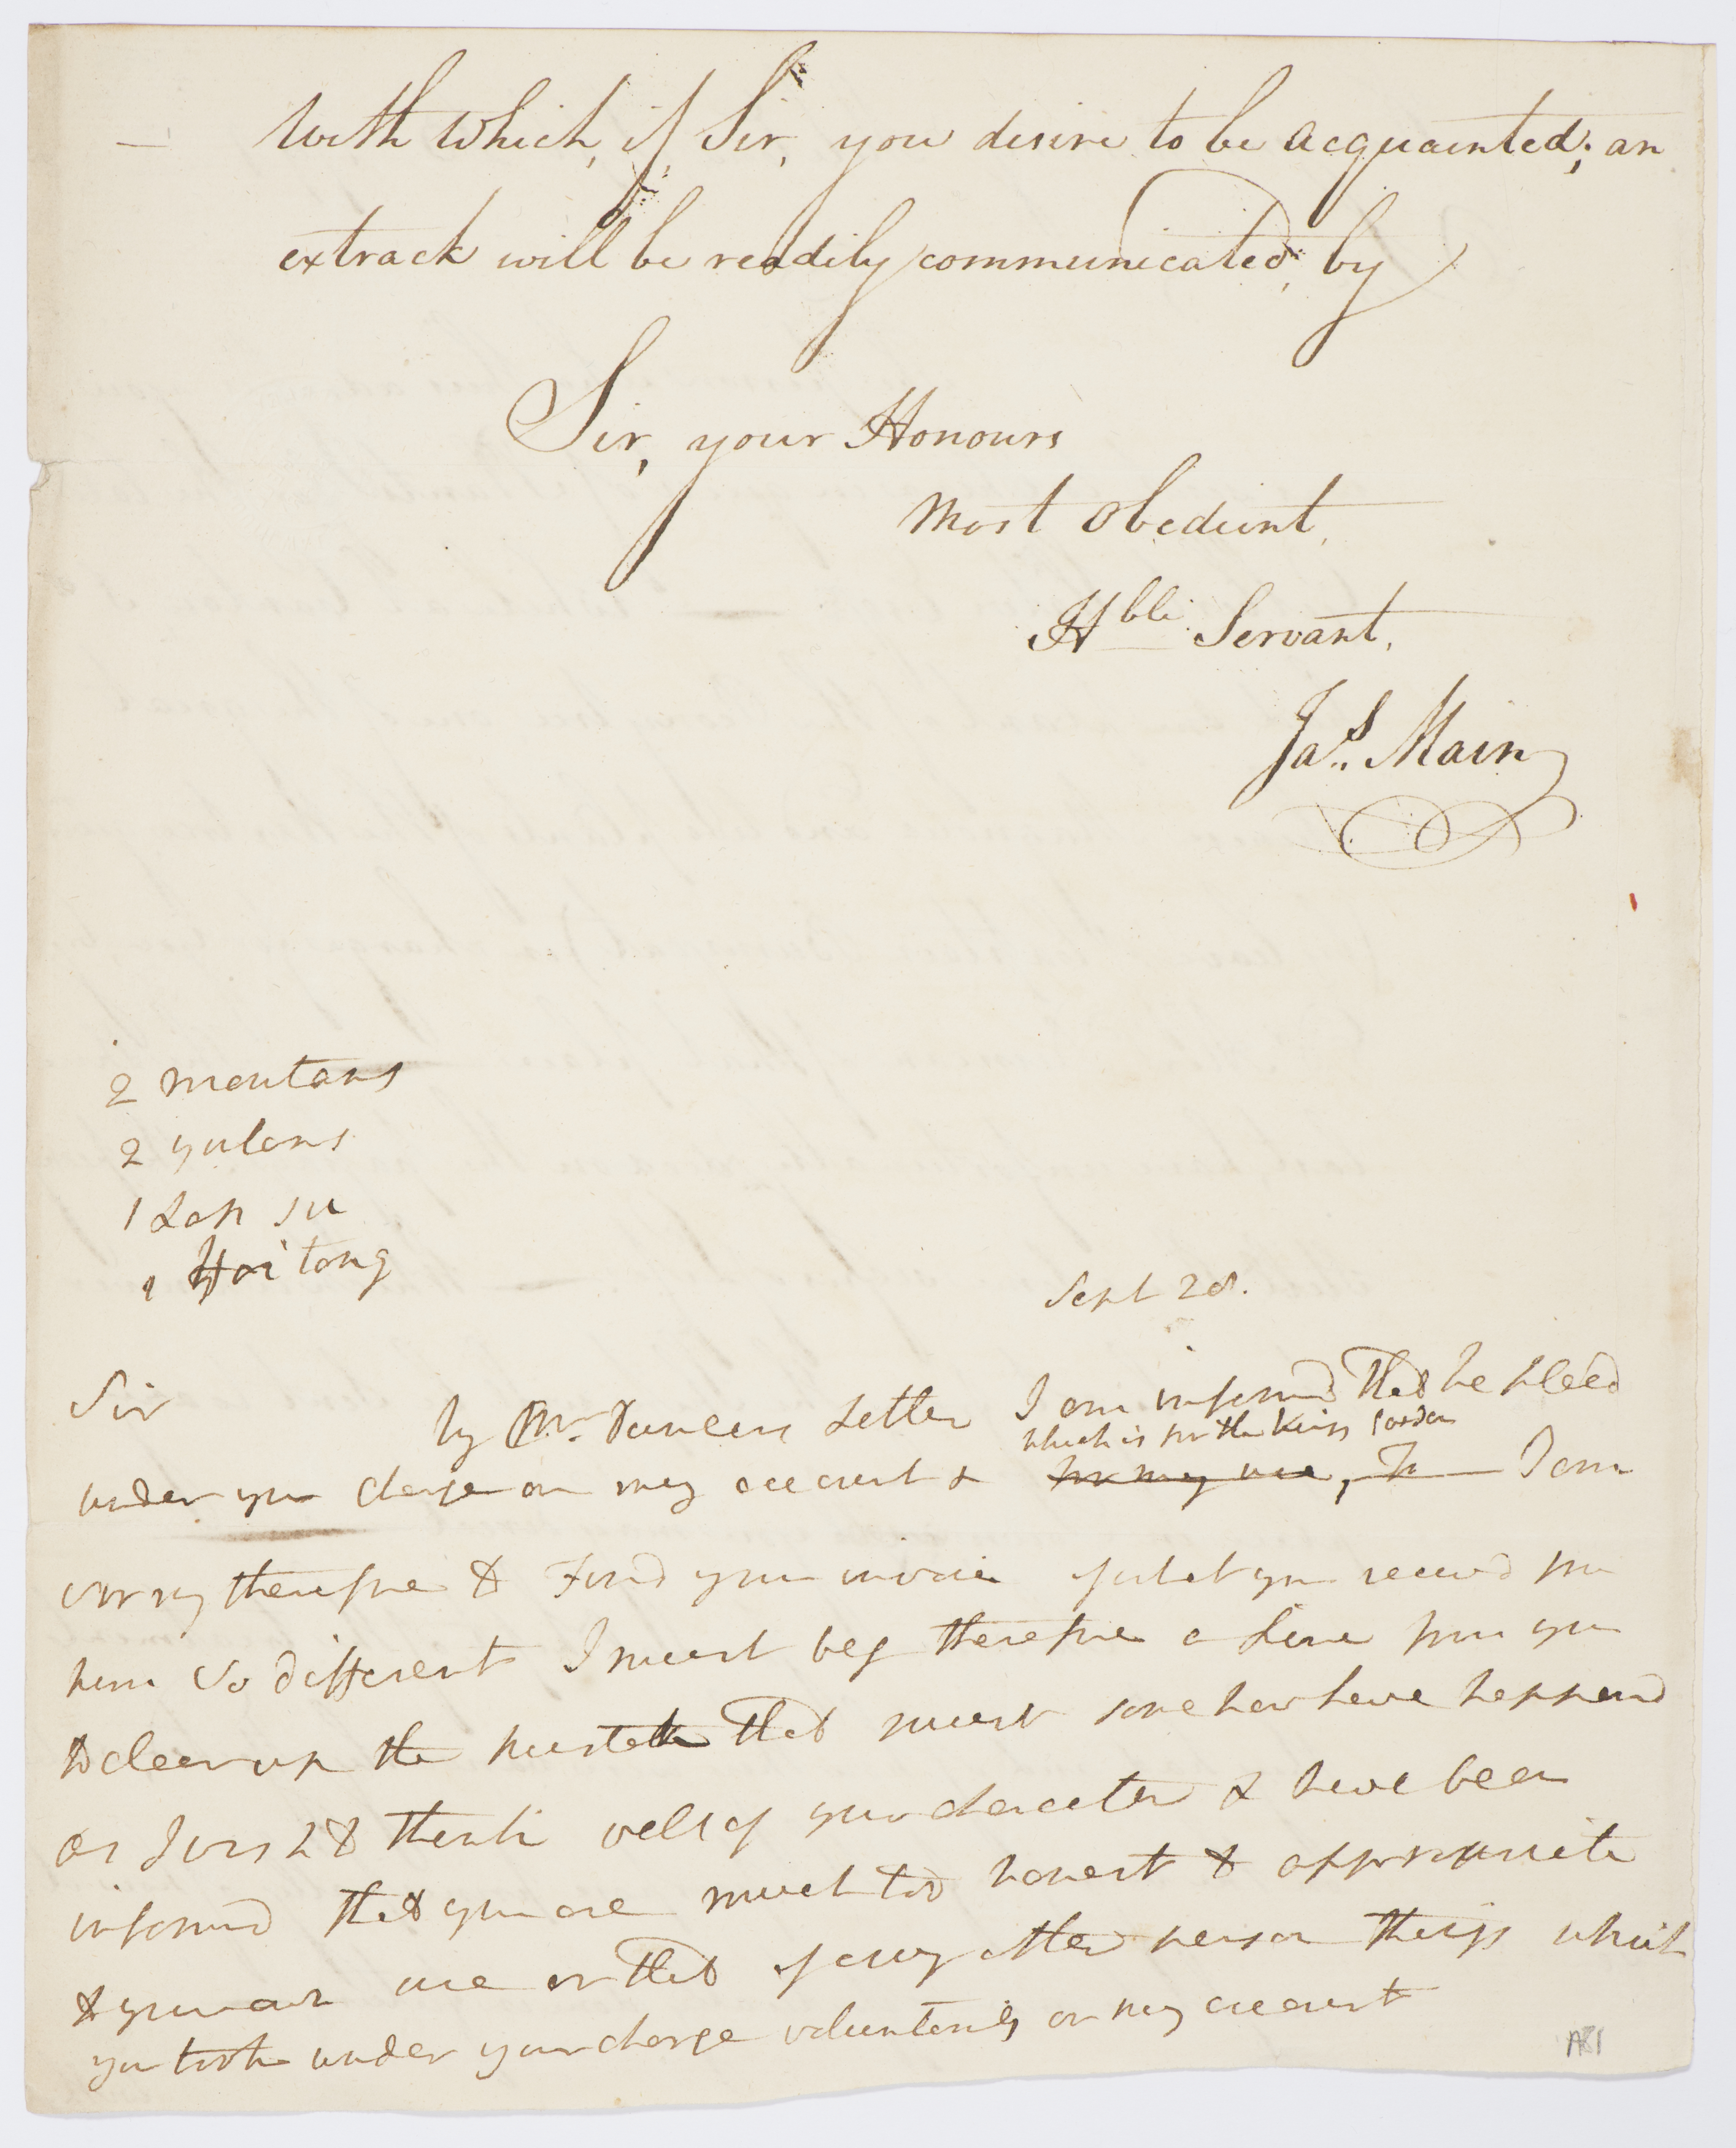 With Which, if Sir, you desire to be acquainted; an
extrack will be readily communicated, by
Sir, your Honours
Most Obedient,
Hble Servant,
Jas. Main
2 moutans
2 yulans
1 Lap su
1 Hai tong
Sept 28.
Sir
by Mr. Duncans Letter I am informd that he placd
which is for the Kings Garden
under your charge on my account & for my use, I am
sorry therefore to Find your invoice of what you receivd from
him so different I must beg therefore a Line from you
to clear up the mistake that must some how have happend
as I wish to think well of your character & have been
informd that you are much too honest to appropriate
to your own use or that of any other person things which
you took under your charge voluntarily on my account
A81